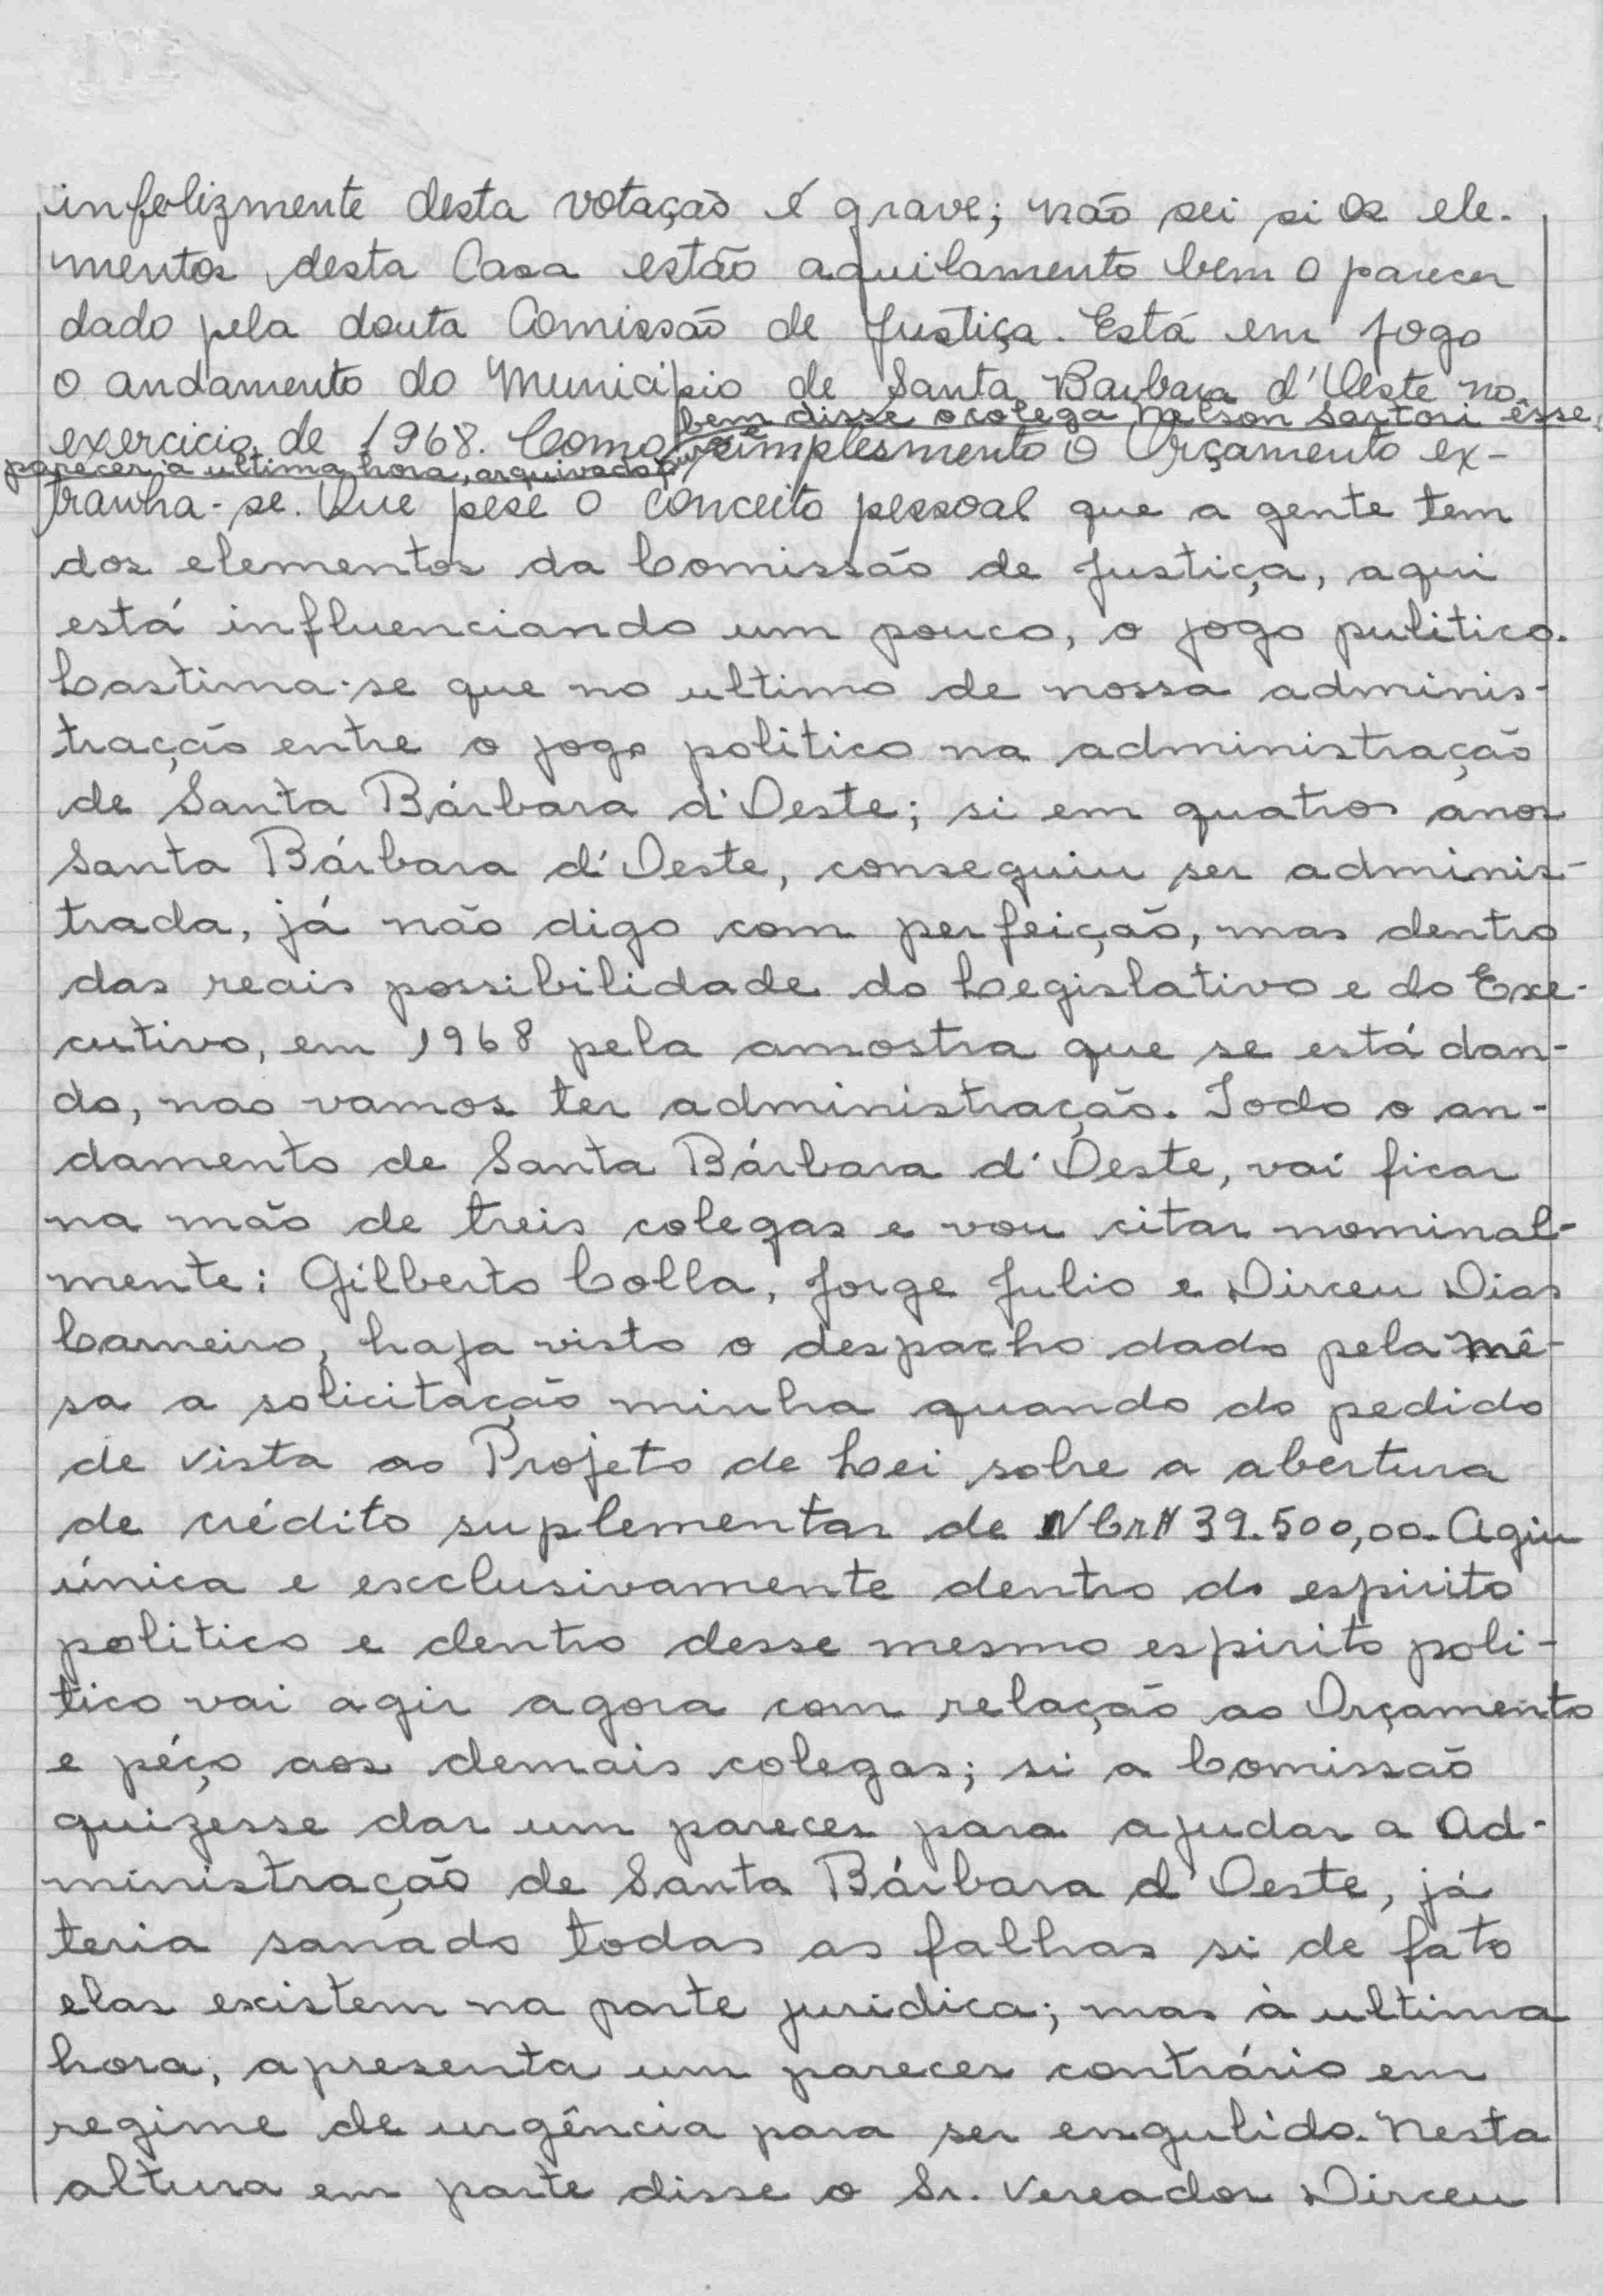 infelizmente desta votação é grave; não sei si os ele-
mentos desta Casa estão aquilamento bem o parecer
dado pela douta Comissão de Justiça. Está em jogo
o andamento do Municipio de Santa Barbara d'Oeste no
bem disse o colega Nelson Sartori êsse
exercicio de 1968. Como pura e simplesmento o Orçamento ex-
parecer a ultima hora, arquivado
tranha-se. Que pese o conceito pessoal que a gente tem
dos elementos da Comissão de Justiça, aqui
está influenciando um pouco, o jogo pulitico.
Lastima-se que no ultimo de nossa adminis-
tração entre o jogo politico na administração
de Santa Bárbara d'Oeste; si em quatro anos
Santa Bárbara d'Oeste, conseguiu ser adminis-
trada, já não digo com perfeição, mas dentro
das reais possibilidade do Legislativo e do Exe-
cutivo, em 1968 pela amostra que se está dan-
do, nao vamos ter administração. Todo o an-
damento de Santa Bárbara d'Oeste, vai ficar
na mão de treis colegas e vou citar nominal-
mente: Gilberto Colla, Jorge Julio e Dirceu Dias
Carneiro, haja visto o despacho dado pela Mê-
sa a solicitação minha quando do pedido
de vista ao Projeto de Lei sobre a abertura
de crédito suplementar de NCr$ 39.500,00. Agiu
única e exclusivamente dentro do espirito
politico e dentro desse mesmo espirito poli-
tico vai agir agora com relação ao Orçamento
e péço aos demais colegas; si a Comissão
quizesse dar um parecer para ajudar a Ad-
ministração de Santa Bárbara d'Oeste, já
teria sanado todas as falhas si de fato
elas existem na parte juridica; mas à ultima
hora, apresenta um parecer contrário em
regime de urgência para ser engulido. Nesta
altura em parte disse o Sr. Vereador Dirceu